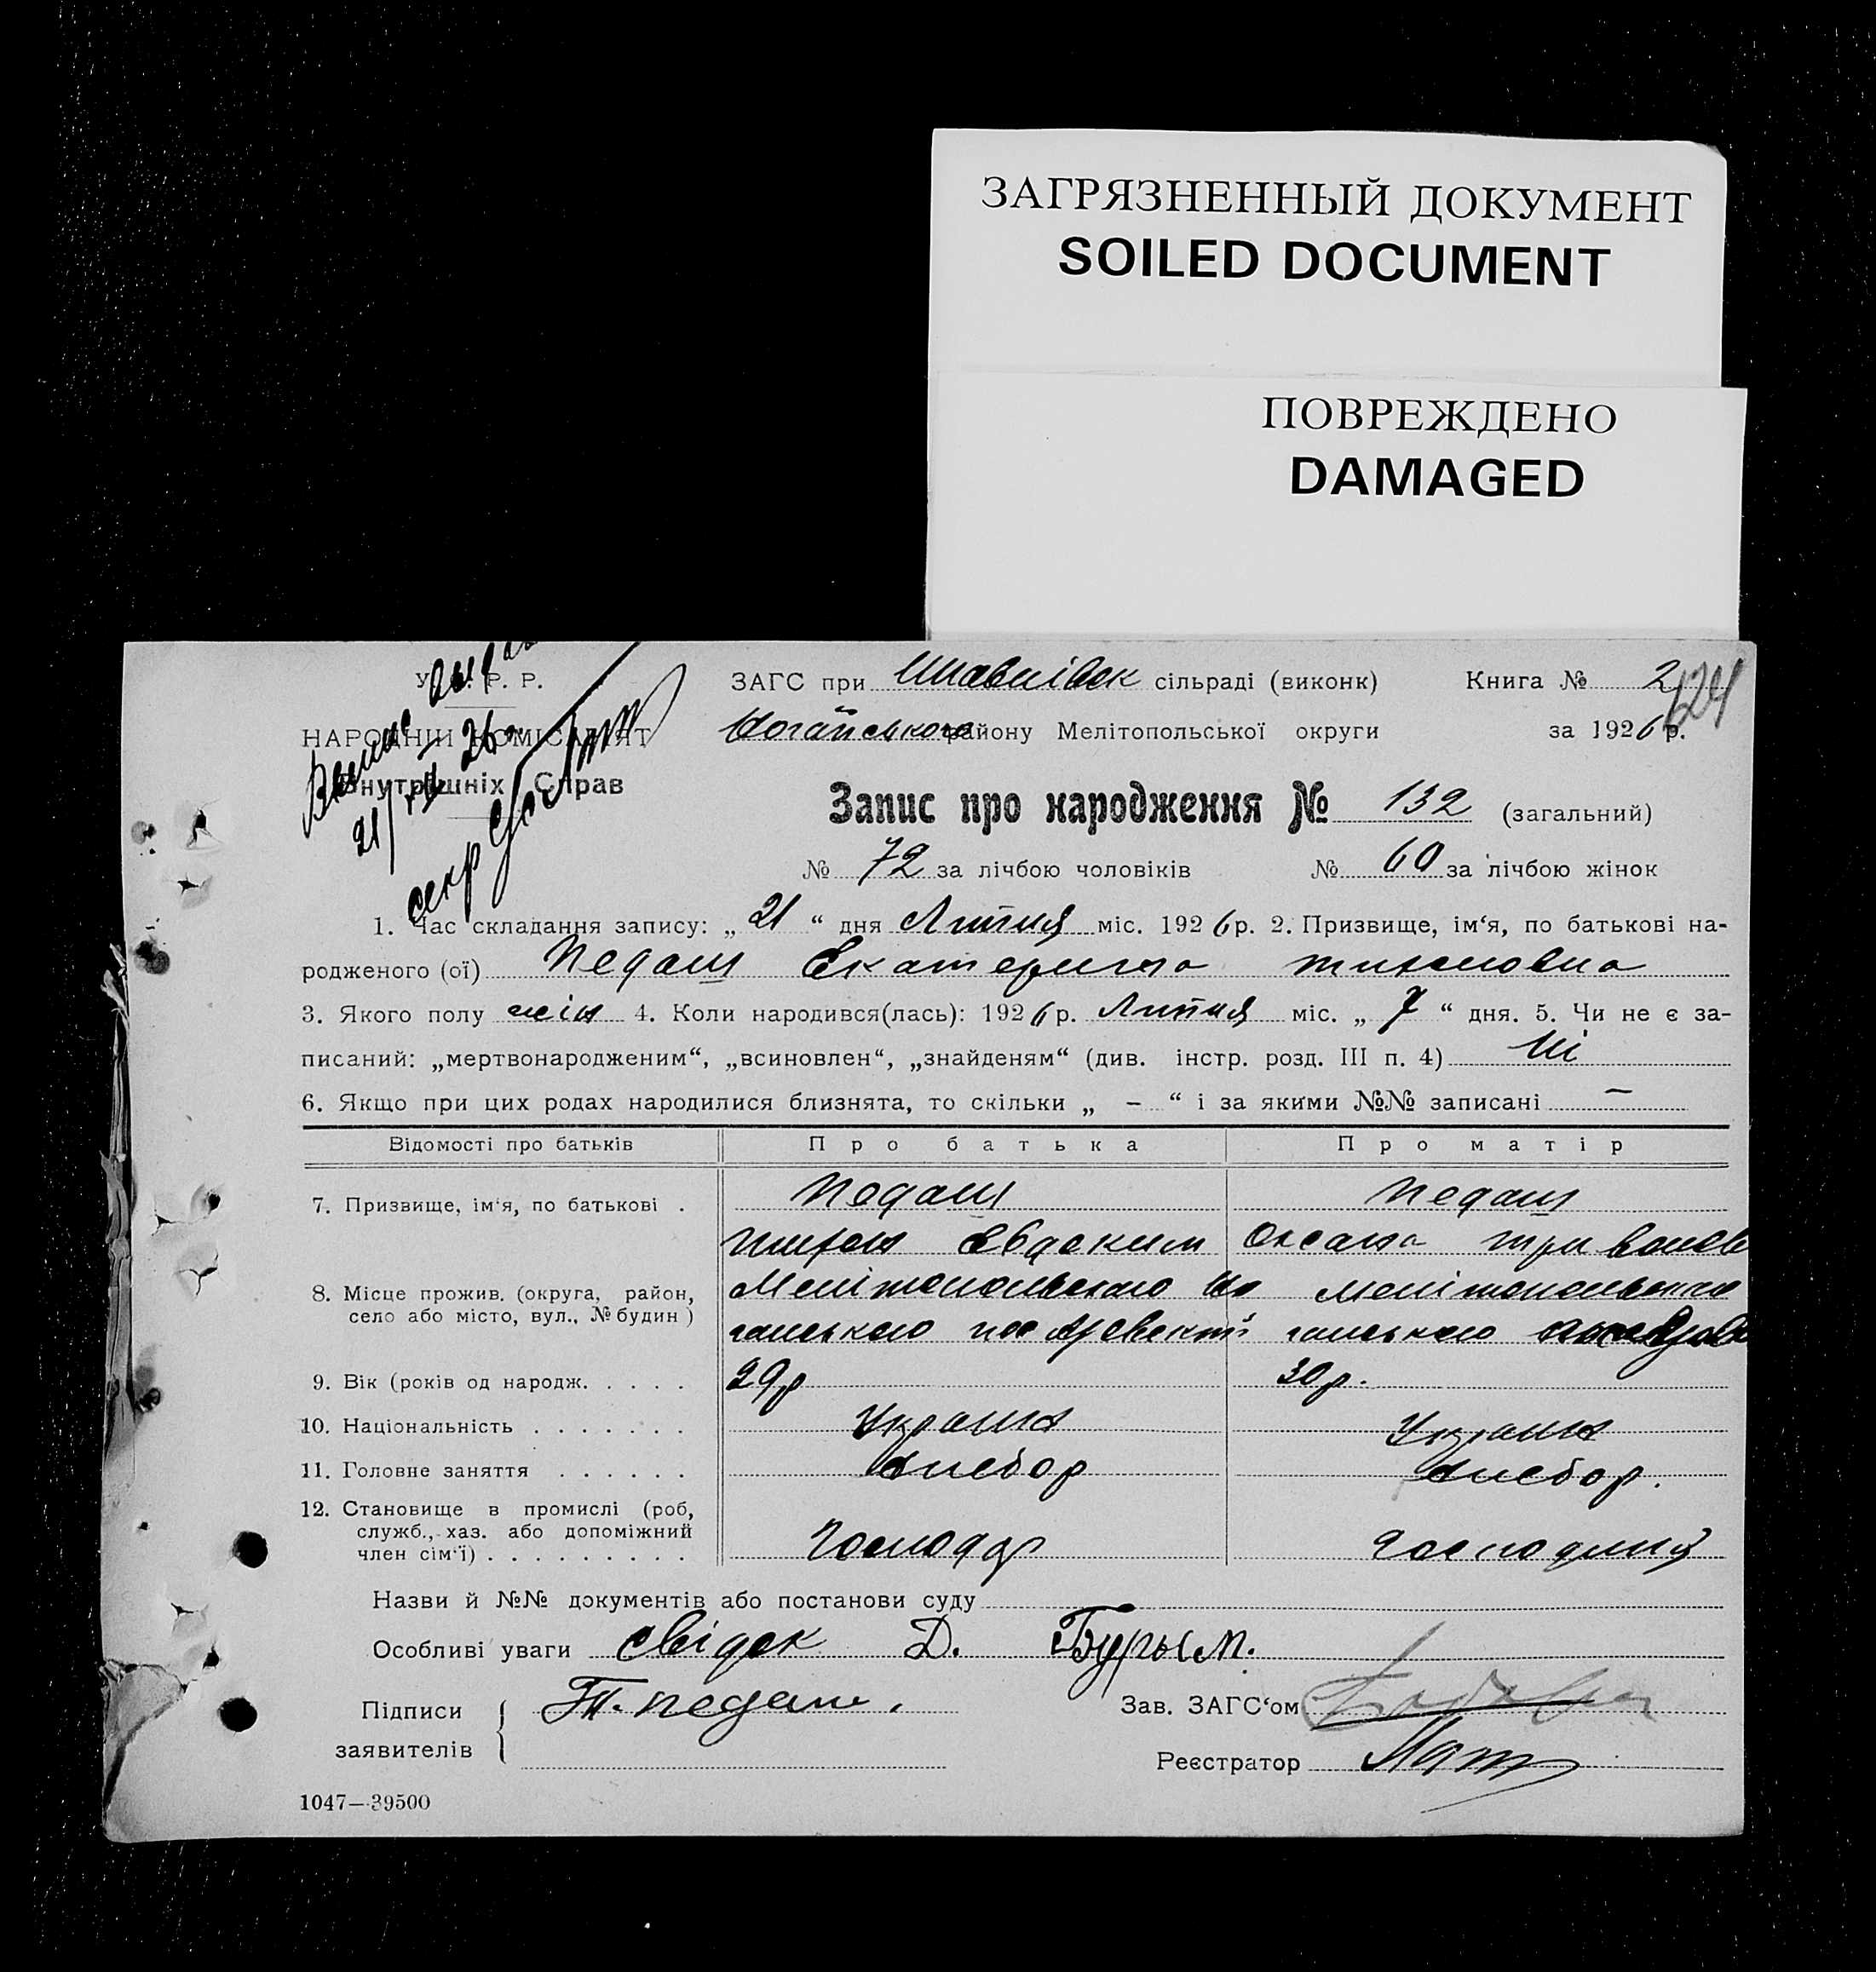 ЗАГРЯЗНЕННЫЙ ДОКУМЕНТ
SOILED DOCUMENT
ПОВРЕЖДЕНО
DAMAGED
У. Р. Р.
НАРОДНІЙ КОМІСАРІЯТ
Внутрішніх Справ
21/ 26
секр
ЗАГС при сільраді (виконк) Книга № 2
124
Ногайського району Мелітопольської округи за 1926 р.
Запис про народження № 132 (загальний)
№ 72 за лічбою чоловіків № 60 за лічбою жінок
1. Час складання запису: „ 21 “ дня Липня міс. 1926 р. 2. Призвище, ім‘я, по батькові на-
родженого (ої) Педаш Екатерина тихоновна
3. Якого полу жін 4. Коли народився(лась): 1926 р. Липня міс. „ 7 “ дня. 5. Чи не є за-
писаний: „мертвонародженим“, „всиновлен“, „знайденям“ (див. інстр. розд. III п. 4) Ні
6. Якщо при цих родах народилися близнята, то скільки „ – “ і за якими №№ записані —
Відомості про батьків Про батька Про матір
7. Призвище, ім‘я, по батькові . Педаш Педаш
Тихон Евдоким Оксана
8. Місце прожив. (округа, район, село або місто, вул., № будин ) Мелітопольского Но Мелітопольского
гайського гайського
9. Вік (років од народж. . . . . 29 р 30 р.
10. Національність . . . . . . . Україна Україна
11. Головне заняття . . . . . . хлебор хлебор.
12. Становище в промислі (роб,
служб., хаз. або допоміжний
член сім‘ї) . . . . . . . . . Господар Господиня
Назви й №№ документів або постанови суду
Особливі уваги свідок Д. Бурым.
Підписи заявителів Т. педаш. Зав. ЗАГС‘ом
Реєстратор
1047—39500